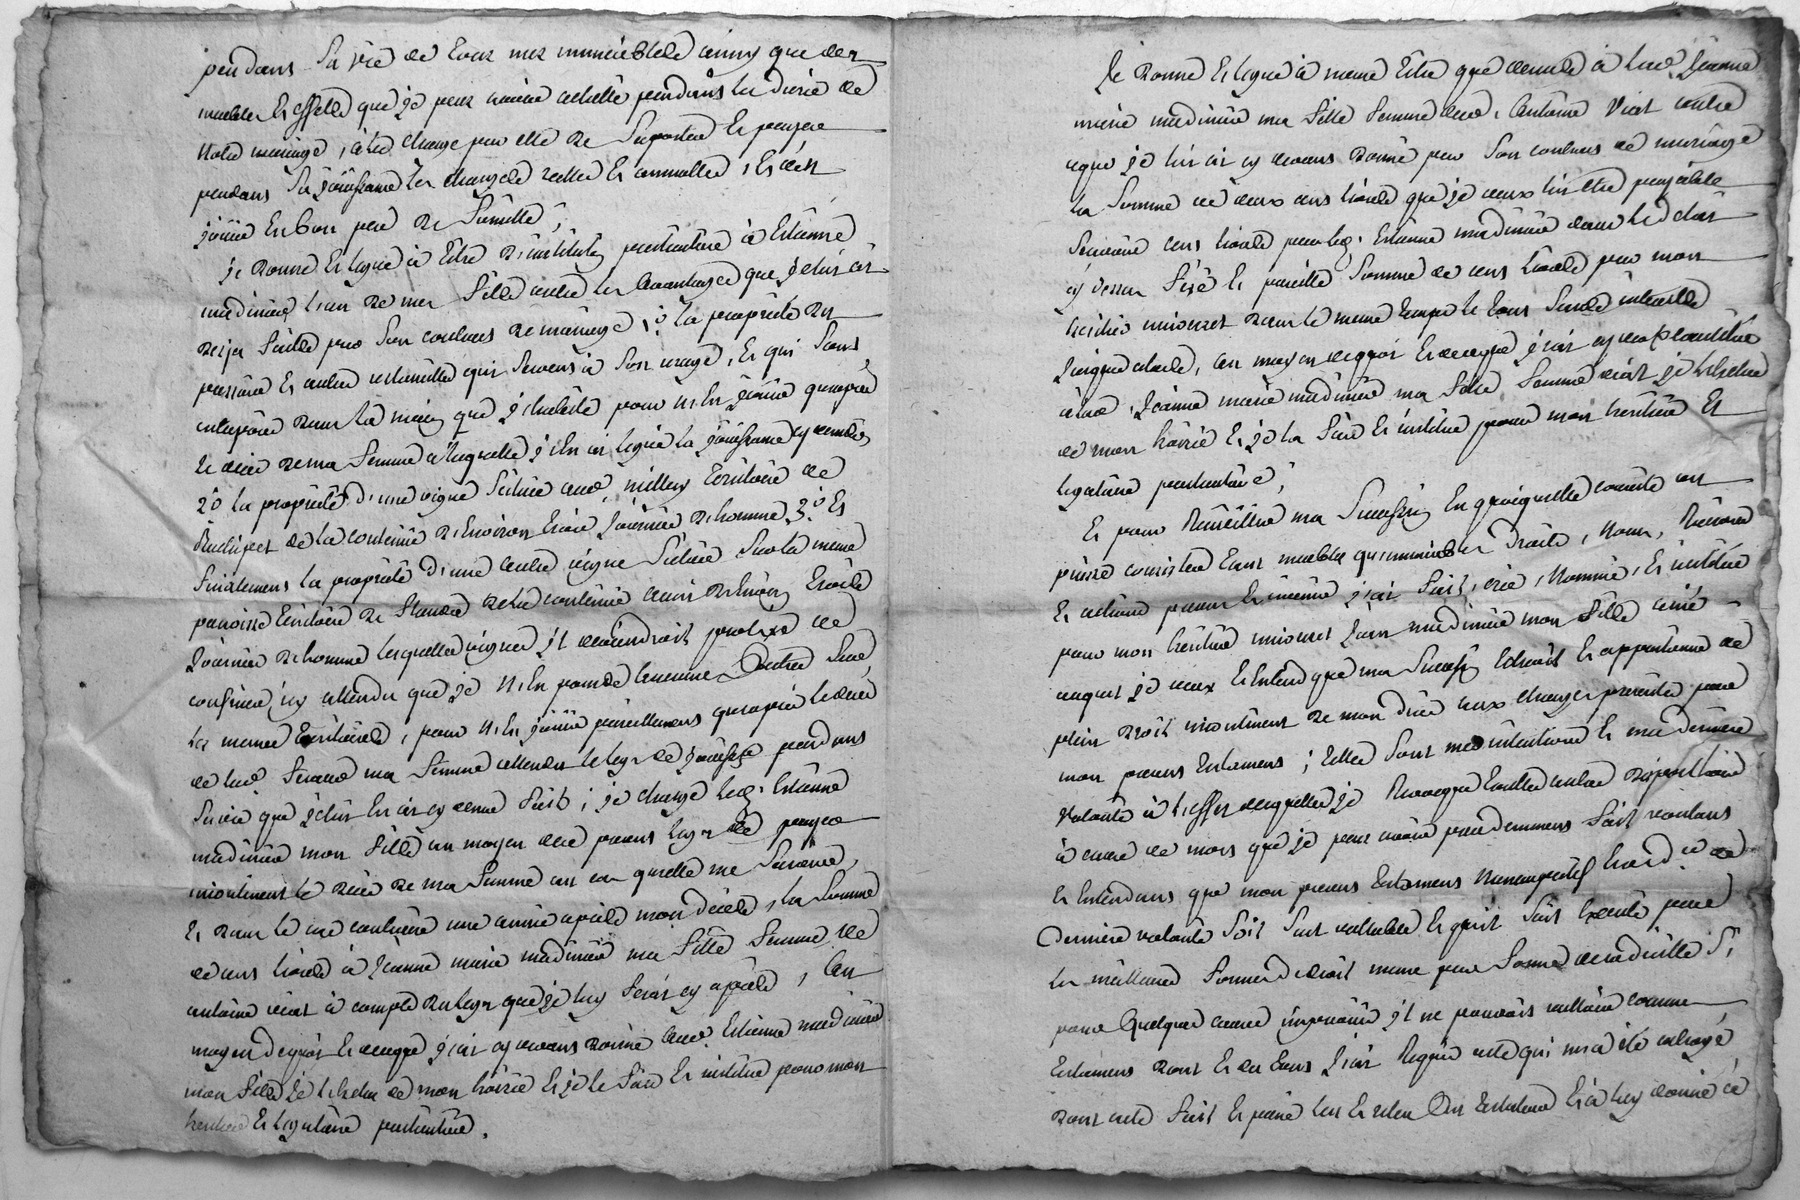 pendant sa vie de tous mes immeubles ainsy que des
meubles et effets que je peux avoir achetté pendant la durée de
notre mariage, à la charge par elle de suporter et payer
pendant sa jouissance les charges réelles et annuelles, et d'en
jouir en bon père de famille;
je donne et legue à titre d'institution particulière à Etienne
madinier l'un de mes fils outre les avantages que je luy ai
desja faits par son contract de mariage, 1° la propriété du
pressoir et autres ustancilles qui servent à son usage, et qui sont
dans la maison que j'habite pour n'en jouir qu'après
le décès de ma femme à laquelle j'en ai legué la jouissance cy dessus,
2° la propriété d'une vigne située au millery territoire de
de la contenue d'environ trois journées d'homme, 3° et
finalement la propriété d'une autre vigne située sur la meme
paroisse territoire de de la contenue aussi d'environ trois
journées d'homme lesquelles vignes il deviendroit inutile de
confiner icy attendu que je n'en possede aucunes autres sur
les memes territoires, pour n'en jouir pareillement qu'après le décès
de ma femme attendu le legs de jouissance pendant
sa vie que je luy en ai cy dessus fait; je charge led. Etienne
madinier mon fils au moyen des présens legs de payer
incontinent le décès de ma femme au cas qu'elle me survive,
et dans le cas contraire une année après mon décès, la somme
de cent livres à Jeanne marie madinier ma fille femme de
antoine viat à compte du legs que je luy ferai cy après, au
moyen de quoi et de ce que j'ai cy devant donné aud. Etienne madinier
mon fils je le de mon hoirie et je le fais et institue pour mon
héritier et légataire particulier.
Je donne et legue à meme titre que dessus à lad. Jeanne
marie madinier ma fille femme dud. Antoine Viat outre
ce que je luy ai cy devant donné par son contract de mariage
la somme de deux cent livres que je veux luy être payable
scavoir cent livres par led. Etienne madinier dans le délai
cy dessus fixé et pareille somme de cent livres par mon
héritier universel dans le meme temps le tout sans interets
jusqu'alors, au moyen de quoi et de ce que j'ai cy devant constitué
à lad. Jeanne marie madinier ma fille femme viat je
de mon hoirie et je la fais et institue pour mon héritière et
légataire particulière;
Et pour ma succession en quoi qu'elle consiste ou
puisse consister tant meubles qu'immeubles droits, noms, raisons
et actions j'ai fait, créé, nommé, et institué
pour mon héritier universel Jean madinier mon fils ainé
auquel je veux et entend que ma succession échoit et appartienne de
plein droit incontinent de mon décès aux charges portées par
mon présent testament; telles sont mes intentions et ma dernière
volonté à l'effet de quoi je révoque toutes autres dispositions
à cause de mort que je peux avoir précédemment fait voulant
et entendant que mon présent testament nuncupatif
dernière volonté soit seul vallable et qu'il soit exécuté par
la meilleure forme de droit meme par forme de codicille si
pour quelques causes imprévües il ne pouvoit valloir comme
testament dont et du tout j'ai requis acte qui m'a été octroyé
dont acte fait et passé lu et relu au testateur et à luy donné à